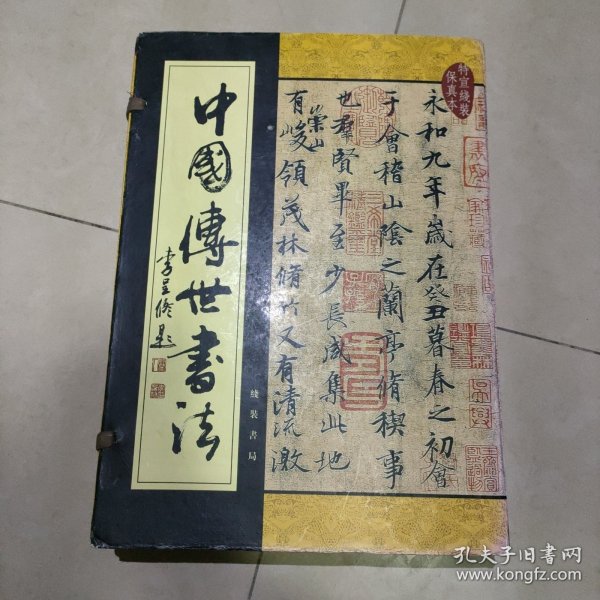 中國傳世書法
李呈修題
綫裝書局
特宣綫裝
保真本
永和九年歲在癸丑暮春之初會
于會稽山陰之蘭亭脩稧事
也羣賢畢至少長咸集此地
有崇山峻領茂林脩竹又有清流激
孔夫子旧書网
www.kongfz.com